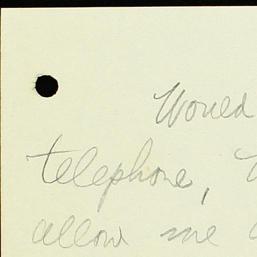 Would
telephone,
allow me